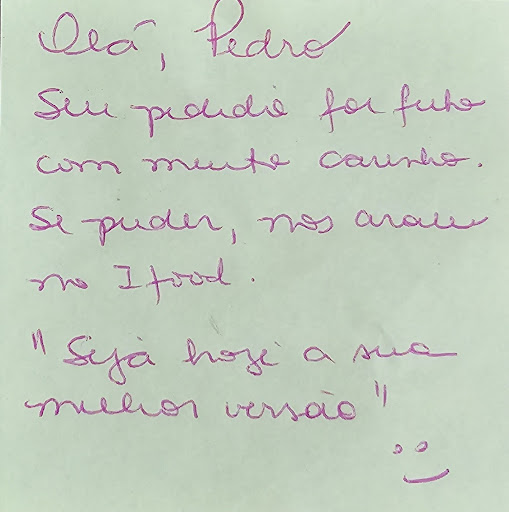 Olá, Pedro
Seu pedido foi feito
com muito carinho.
Se puder, nos avalie
no Ifood.
"Seja hoje a sua
melhor versão"